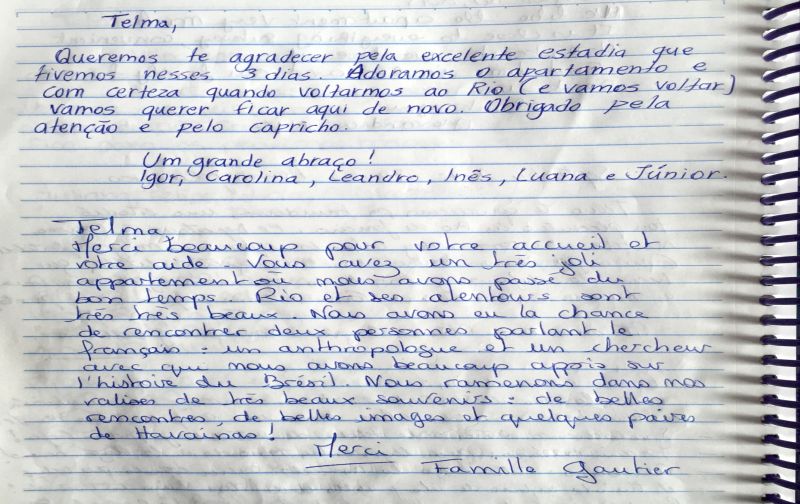 Telma,
Queremos te agradecer pela excelente estadia que
tivemos nesses 3 dias. Adoramos o apartamento e
com certeza quando voltarmos ao Rio (e vamos voltar)
vamos querer ficar aqui de novo. Obrigado pela
atenção e pelo capricho.
Um grande abraço!
Igor, Carolina, Leandro, Inês, Luana e Júnior.
Telma,
Merci beaucoup pour votre accueil et
votre aide. Vous avez un très joli
appartement où nous avons passé du
bon temps. Rio et ses alentours sont
très très beaux. Nous avons eu la chance
de rencontrer deux personnes parlant le
français : un anthropologue et un chercheur
avec qui nous avons beaucoup appris sur
l'histoire du Brésil. Nous ramenons dans nos
valises de très beaux souvenirs : de belles
rencontres, de belles images et quelques paires
de Havaïnas!
Merci
Famille Gautier